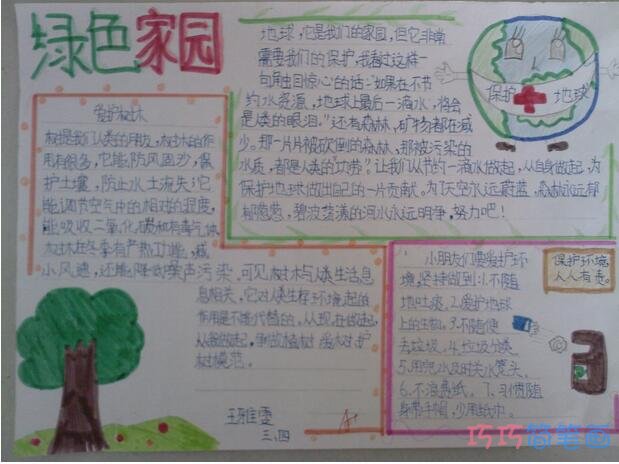 绿色家园
地球，它是我们的家园，但它非常
需要我们的保护，我看过这样一
句角虫目惊心的话："如果在不节
约水资源，地球上最后一滴水，将会
是人类的眼泪。"还有森林，矿物都在减
少。那一片片被砍倒的森林，那被污染的
水质，都是人类的"功劳"。让我们从节约一滴水做起，从自身做起，为
保护地球做出自己的一片贡献，为了天空永远蔚蓝，森林永远郁
郁葱葱，碧波荡漾的河水永远明净，努力吧！
保护
地球
爱护树木
树是我们人类的朋友，树木的作
用有很多，它能防风固沙，保
护土壤，防止水土流失它
能调节空气中的相对的湿度，
能吸收二氧化碳和有毒气体
树林在冬季有产热功能，减
小风速，还能降低噪声污染，可见树木与人类生活息
息相关，它对人类生存环境起的
作用是不能代替的，从现在做起，
从我做起，争做植树爱树护
树模范。
小朋友们要爱护环
境，坚持做到：1.不随
地吐痰。2.爱护地球
上的生物。3.不随便
丢垃圾。4.垃圾分类。
5.用完水及时关水笼头。
6.不浪费纸。7.习惯随
身带手帕，少用纸巾。
保护环境
人人有责。
三、四
A+
巧巧简笔画